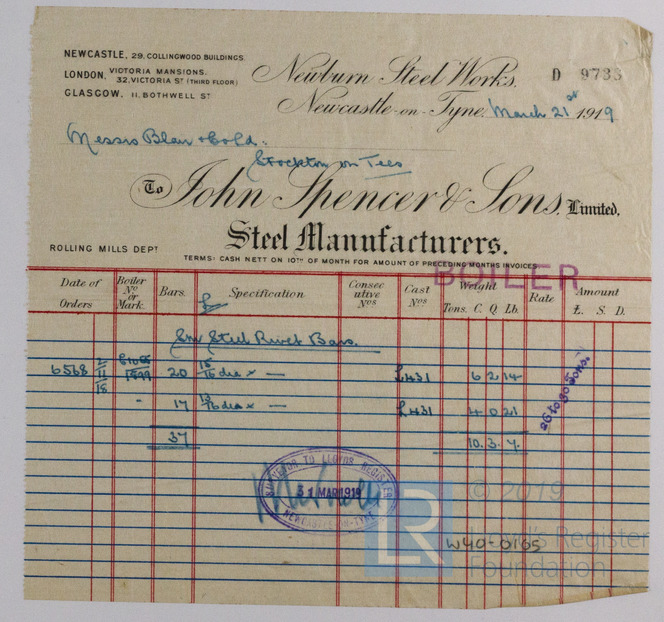 NEWCASTLE, 29, COLLINGWOOD BUILDINGS.
LONDON, VICTORIA MANSIONS.
32, VICTORIA ST (THIRD FLOOR)
GLASGOW, 11, BOTHWELL ST
Newburn Steel Works,
D 9733
Newcastle-on-Tyne, March 21st 1919
Messrs Blair & Co Ld.
Stockton on Tees
To John Spencer & Sons, Limited,
Steel Manufacturers.
ROLLING MILLS DEPT
TERMS: CASH NETT ON 10TH OF MONTH FOR AMOUNT OF PRECEDING MONTHS INVOICES
BOILER
Date of Orders
Boiler No or Mark.
Bars.
Specification
Consecutive Nos
Cast Nos
Weight
Tons. C. Q. Lb.
Rate
Amount
£. S. D.
Steel Rivet Bars.
6568 20 15/16 dia x — 6 2 14
26 to 30 Tons.
" 17 dia x — 4 0 21
37 10. 3. 7.
SURVEYOR TO LLOYDS REGISTER
31 MAR 1919
NEWCASTLE-ON-TYNE
LR
© 2019
Lloyd's Register
Foundation
W40-0165